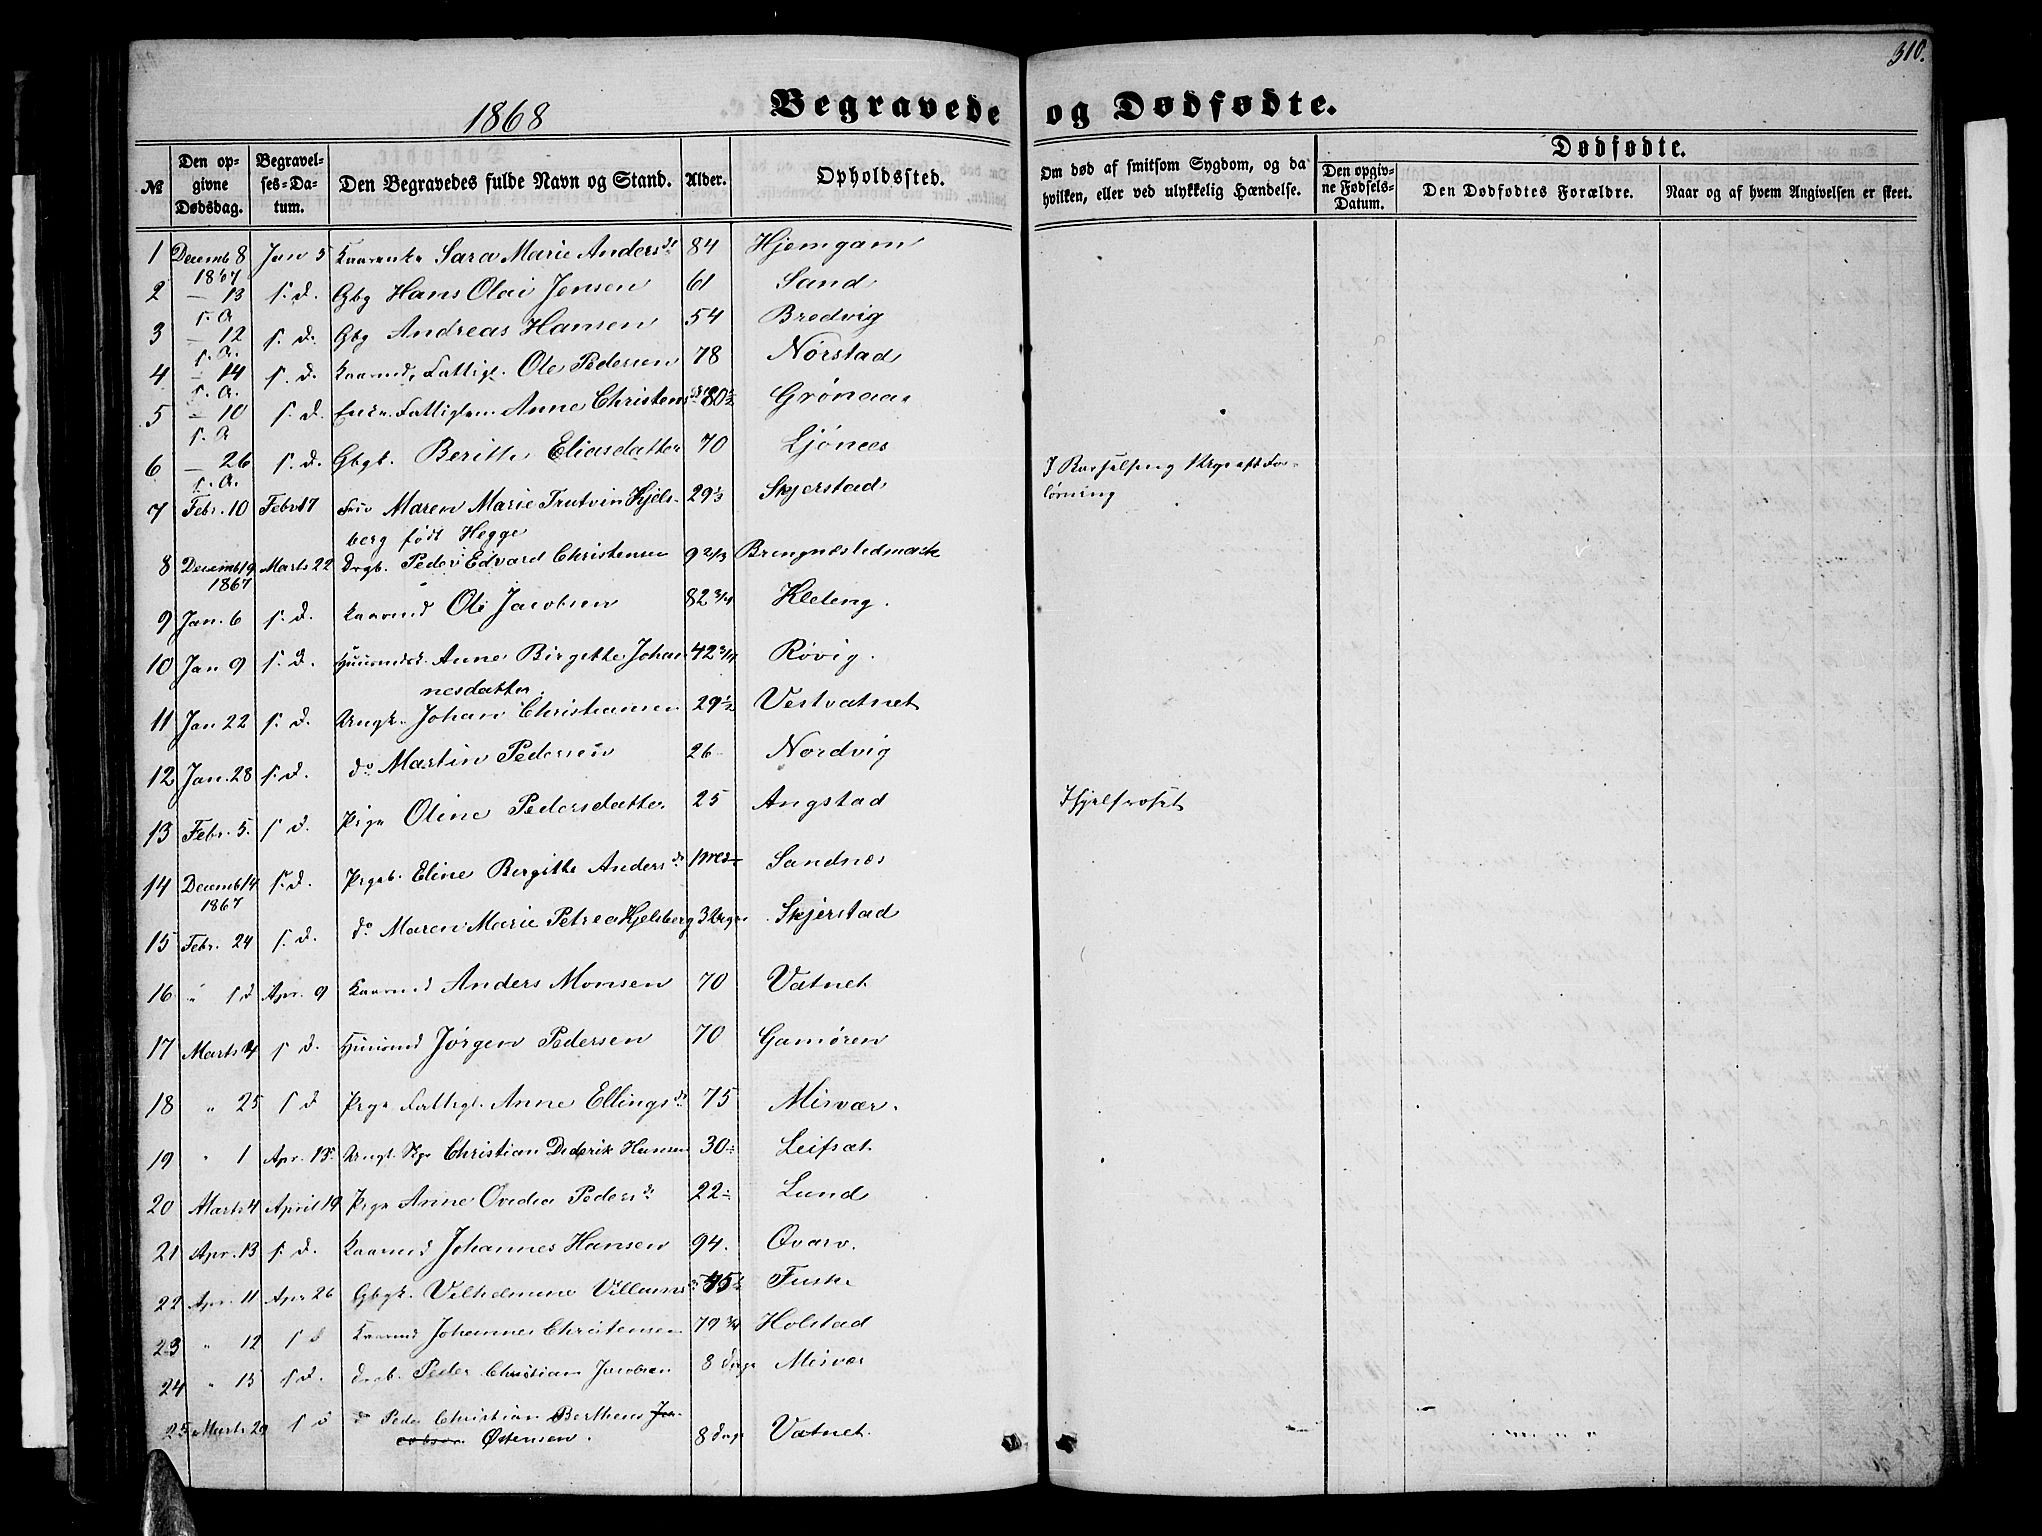 310.
1868 Begravede og Dødfødte.
№ Den opgivne Dødsdag. Begravelses-Datum. Den Begravedes fulde Navn og Stand. Alder. Opholdssted. Om død af smitsom Sygdom, og da hvilken, eller ved ulykkelig Hændelse. Dødfødte. Den opgivne Fødsels-Datum. Den Dødfødtes Forældre. Naar og af hvem Angivelsen er skeet.
1 Decemb 8 1867 Jan 5 Sara Marie Andersdr 84 Hjemgam
2 — 13 s. A. s. d. Gbg Hans Olai Jensen 61 Sand
3 — 12 s. A. s. d. Gbg Andreas Hansen 54 Bredvig
4 — 14 s. A. s. d. Kaarmd, Fattigl. Ole Pedersen 78 Nørstad
5 — 10 s. A s. d. Enke. Fattiglem Anne Christensdr 80½ Grønaas
6 — 26 s. A. s. d. Gbgk. Beritte Eliasdatter 70 Ljønæs
7 Febr. 10 Febr 17 Fru Maren Marie Trutvin Kjels- 29⅓ Skjerstad I Barselseng Uge efter For-
berg født Hegge løsning
8 Decemb 19 1867 Marts 22 Drgb. Peder Edvard Christensen 9 2/3
9 Jan. 6 s. d. Kaarmd Ole Jacobsen 82 3/4 Kleteng.
10 Jan 9 s. d. Huusmdsk. Anne Birgitte Johan 42 3/4 Røvig.
nesdatter.
11 Jan 22 s. d. Ungk. Johan Christiansen 29½ Vestvatnet
12 Jan. 28 s. d. do Martin Pedersen 26 Nordvig
13 Febr. 5. s. d. Pige Oline Pedersdatter 25 Angstad Ihjelfroset
14 Decemb 14 1867 s. d. Pigeb. Eline Birgitte Andersdr Sandnes
15 Febr. 24 s. d. do Maren Marie Petrea Kjelsberg 3 Uger Skjerstad
16 " s d Apr. 9 Kaarmd Anders Monsen 70 Vatnet
17 Marts 4 s d. Huusmd Jørgen Pedersen 70 Gamøren
18 " 25 s d Pige Fattigl. Anne Ellingsdr 75 Misvær.
19 " 1 Apr. 13 Ungk. Christian Diderik Hansen 30 Leifsæt.
20 Marts 4 April 19 Pige Anne Ovedia Pedersdr 22 Lund
21 Apr. 13 s. d. Kaarmd Johannes Hansen 94. Qvarv.
22 Apr. 11 Apr 26 Gbgk. Vilhelmine 45½ Fuske
23 " 12 s d Kaarmd Johannes Christensen 79 3/4 Holstad
24 " 13 s d. Drgb. Peder Christian Jacobsen 8 Dage Misvær
25 Marts 20 s d d Peder Christian Bertheus Ja-
cobsen Østensen. 8 Dage Vatnet.